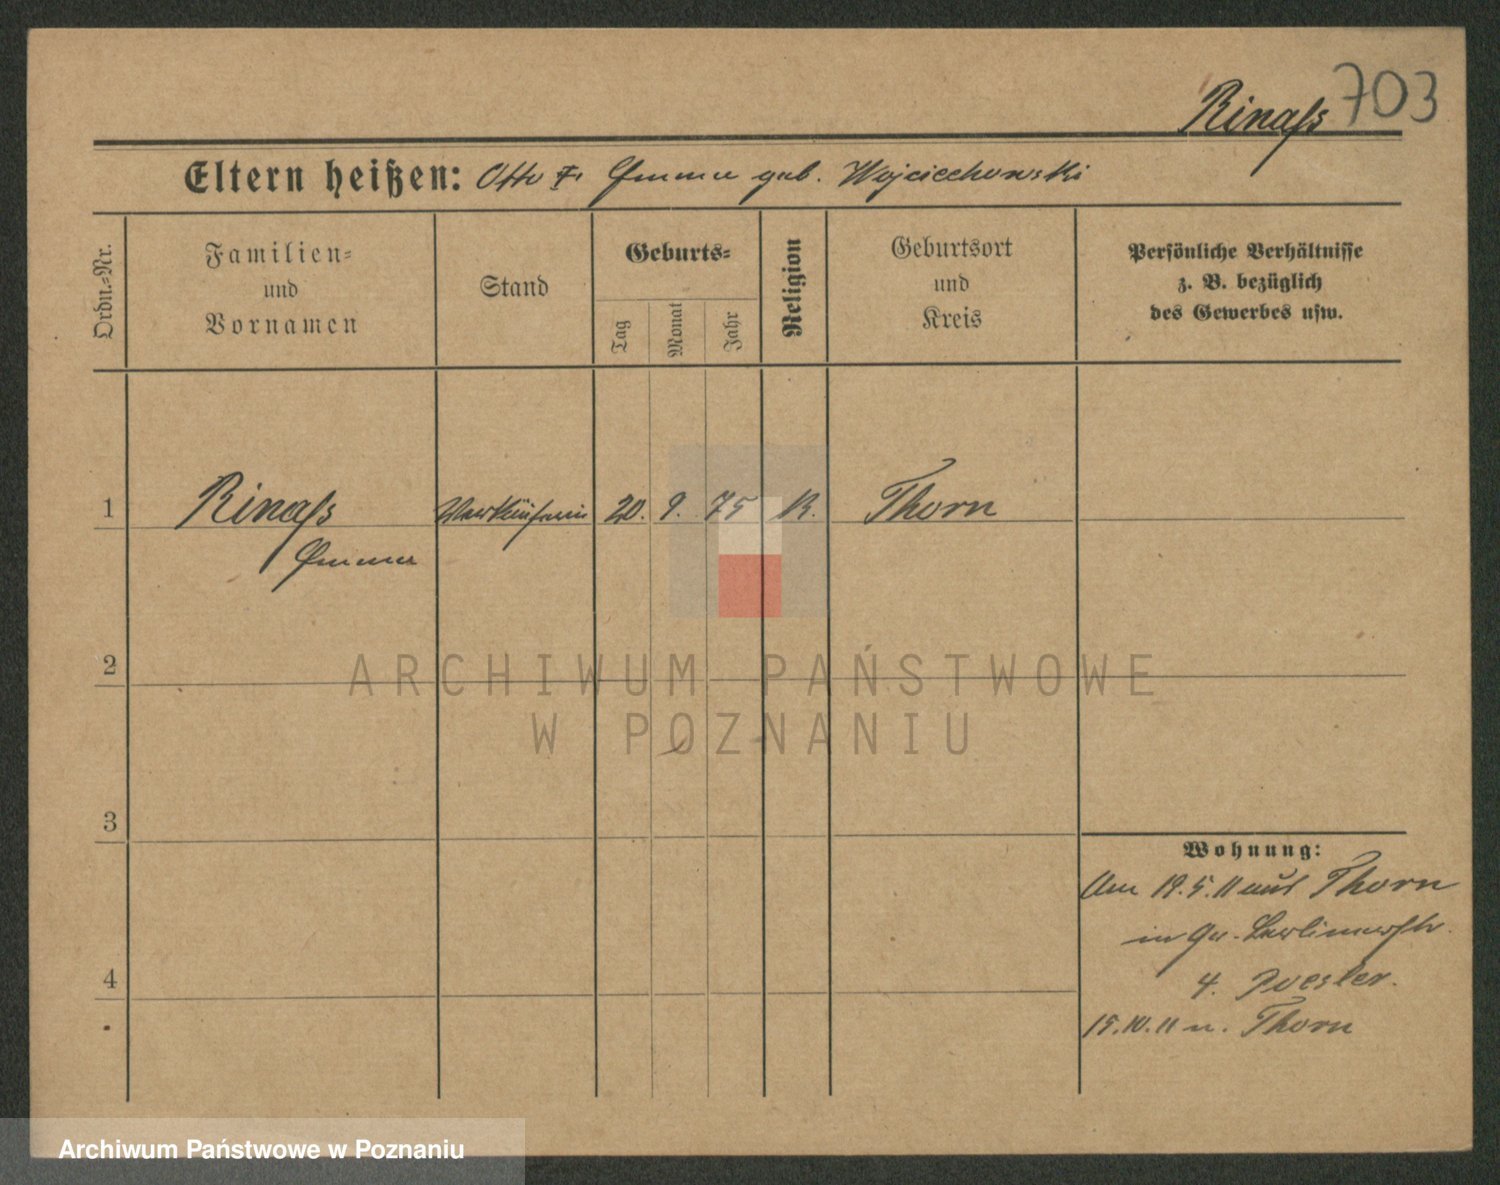 703
Rinaſs
Eltern heißen: Otto F. Emma geb. Wojciechowski
Ordn.-Nr.
Familien-
und
Vornamen
Stand
Geburts-
Tag
Monat
Jahr
Religion
Geburtsort
und
Kreis
Persönliche Verhältnisse
z. B. bezüglich
des Gewerbes usw.
1 Rinaſs Verkäuferin 20. 9. 75 K. Thorn
Emma
2
ARCHIWUM PAŃSTWOWE
W POZNANIU
3
Wohnung:
Am 19.5.11 aus Thorn
in Gn. Berlinerstr.
4
4.
15.10.11 n. Thorn
Archiwum Państwowe w Poznaniu